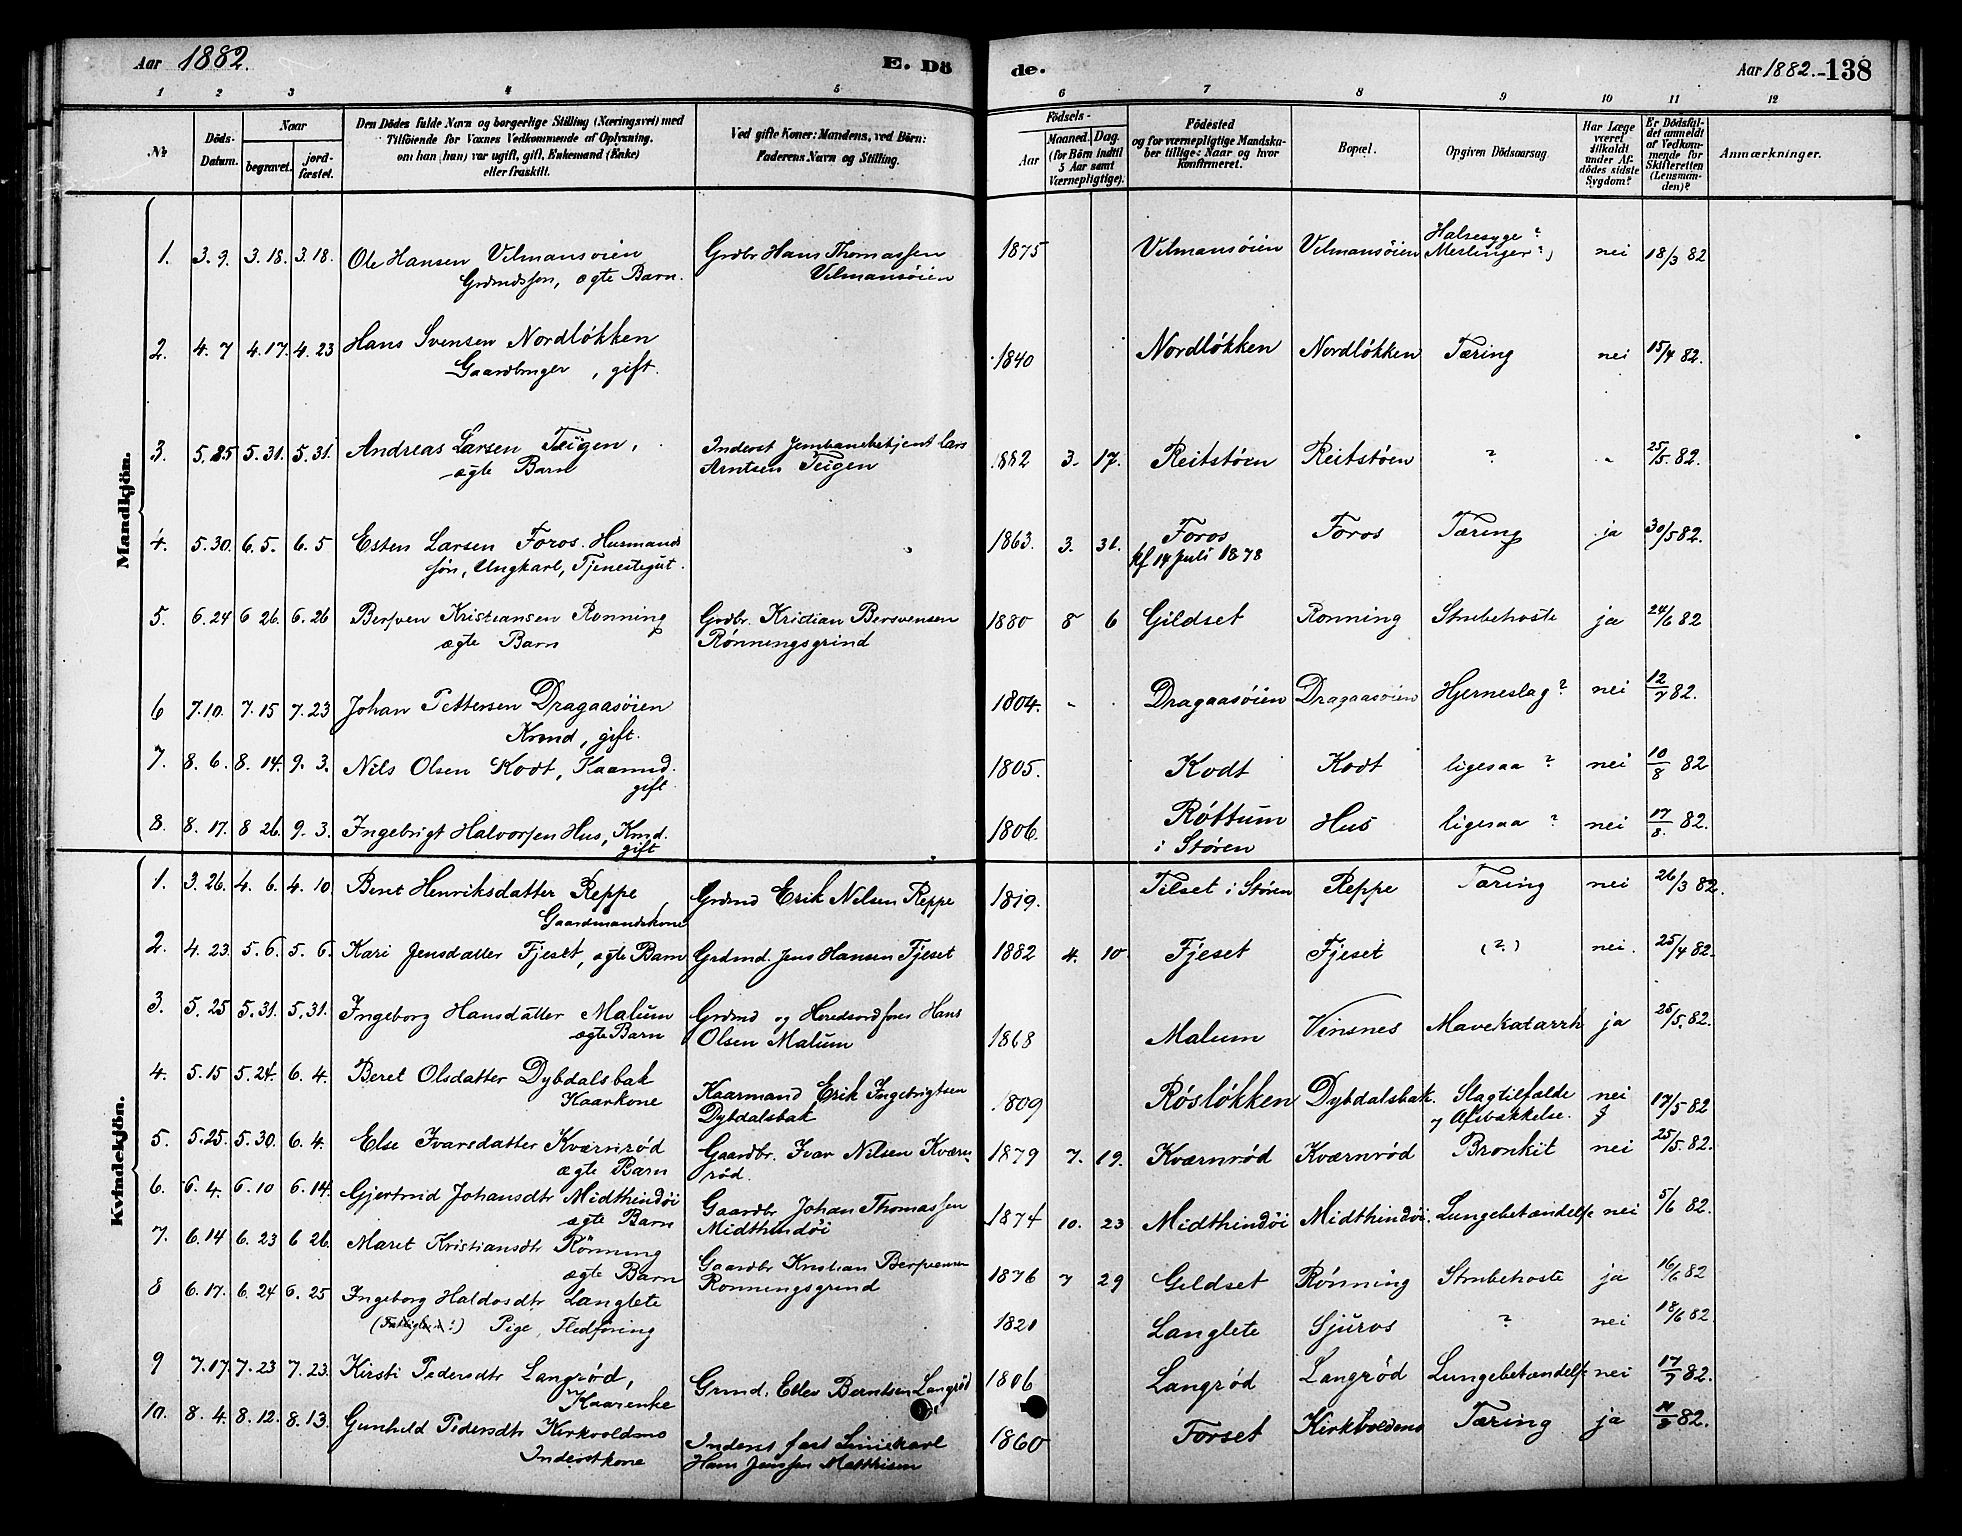 Aar 1882.
E. Dö
de.
Aar 1882. 138
1 2 3 4 5 6 7 8 9 10 11 12
№
Döds-Datum.
Naar
begravet.
jord-fæstet.
Den Dödes fulde Navn og borgerlige Stilling (Næringsvei) med
Tilföiende for Voxnes Vedkommende af Oplysning,
om han (hun) var ugift, gift, Enkemand (Enke)
eller fraskilt.
Ved gifte Koner: Mandens, ved Börn:
Faderens Navn og Stilling.
Födsels-
Aar
Maaned. Dag.
(for Börn indtil
5 Aar samt
Værnepligtige).
Födested
og for værnepligtige Mandska-
ber tillige: Naar og hvor
konfirmeret.
Bopæl.
Opgiven Dödsaarsag.
Har Læge
været
tilkaldt
under Af-
dödes sidste
Sygdom?
Er Dödsfal-
det anmeldt
af Vedkom-
mende for
Skifteretten
(Lensman-
den)?
Anmærkninger.
Mandkjön.
1. 3. 9. 3. 18. 3. 18. Ole Hansen Vilmansöien Grdbr Hans Thomassen 1875 Vilmansöien Vilmansöien Halsesyge? nei 18/3 82
Grdmdssøn, ægte Barn. Vilmansöien Meslinger?)
2. 4. 7 4. 17. 4. 23 Hans Svensen Nordløkken 1840 Nordløkken Nordløkken Tæring nei 15/4 82.
Gaardbruger, gift.
3. 5. 25 5. 31. 5. 31. Andreas Larsen Teigen, Inderst Jernbanebetjent Lars 1882 3. 17. Reitstøen Reitstøen ? " 25/5. 82.
ægte Barn Arntsen Teigen
4. 5. 30. 6. 5. 6. 5 Esten Larsen Foros. Husmands 1863. 3. 31. Foros Foros Tæring ja 30/5 82.
søn, Ungkarl, Tjenestegut. kf 14 Juli 1878
5. 6. 24 6 26. 6. 26 Bersven Kristiansen Ronning Grdbr. Kristian Bersvensen 1880 8 6 Gildset Ronning Strubehoste ja 24/6 82
ægte Barn Rønningsgrind
6 7. 10. 7. 15 7. 23 Johan Pettersen Dragaasöien 1804. - Dragaasöien Dragaasöien Hjerneslag? nei 12/7 82.
Krmd, gift.
7. 8. 6. 8. 14. 9. 3. Nils Olsen Kodt, Kaarmd. 1805. Kodt Kodt ligesaa ? nei 10/8 82
gift.
8. 8. 17. 8 26. 9. 3. Ingebrigt Halvorsen Hus, Krmd. 1806. Røttum Hus ligesaa ? nei 17/8. 82.
gift i Støren
Kvindekjön.
1. 3. 26. 4. 6. 4. 10 Beret Henriksdatter Reppe Grdmd Erik Nilsen Reppe 1819. Tilset i Støren Reppe Tæring nei 26/3 82.
Gaardmandskone
2. 4. 23. 5. 6. 5. 6. Kari Jensdatter Fjeset, ægte Barn Grdmd. Jens Hansen Fjeset 1882 4. 10 Fjeset Fjeset (?) nei. 25/4 82.
3. 5. 25 5. 31. 5. 31. Ingeborg Hansdatter Malum Grdmd og Heredsordfører Hans 1868 Malum Vinsnes Mavekatarrh ja 25/5. 82.
ægte Barn Olsen Malum
4. 5. 15 5. 24. 6. 4. Beret Olsdatter Dybdalsbak Kaarmand Erik Ingebrigtsen 1809 Røsløkken Dybdalsbak. Slagtilfælde nei 17/5 82
Kaarkone Dybdalsbak og Afsvækkelse.
5. 5. 25. 5. 30. 6. 4. Else Ivarsdatter Kværnrød Gaardbr. Ivar Nilsen Kværn- 1879 7. 19. Kværnrød Kværnrød Bronkit nei 25/5. 82.
ægte Barn rød.
6. 6. 4. 6. 10 6. 14. Gjertrud Johansdtr Midthindøi Gaardbr Johan Thomassen 1874 10. 23 Midthindøi Midthindøi. Lungebetændelse nei 5/6 82.
ægte Barn Midthindøi
7. 6. 14 6. 23 6 26. Maret Kristiansdtr Rönning Gaardbr Kristian Bersvensen 1876 7 29 Gildset Rønning Strubehoste ja 16/6 82
ægte Barn Ronningsgrind
8 6. 17. 6. 24 6. 25 Ingeborg Haldosdtr Langlete 1821 Langlete Sjuros ? nei 18/6 82.
Pige, Fledføring
9 7. 17. 7. 23 7. 23. Kirsti Pedersdtr Langrød, Grmd. Ellev Berntsen Langrød 1806 Langrød Langrød Lungebetændelse nei 17/7 82.
Kaarenke
10. 8. 4. 8. 12. 8. 13. Gunhild Pedersdtr Kirkvoldmo Inderst fast Liniekarl 1860 Forset Kirkvoldmo Tæring ja 82.
Inderstkone Hans Jenssen Matthisen